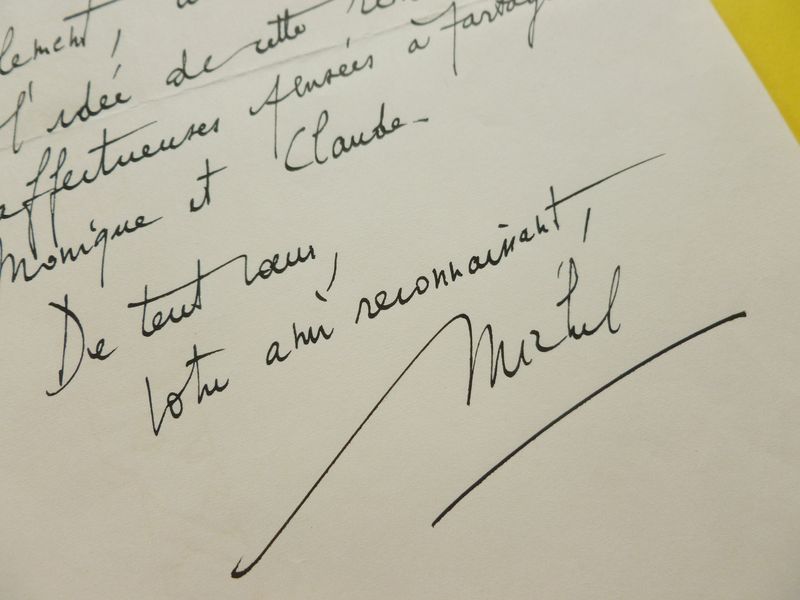 lement,
l'idée de cette ren
affectueuses pensées à partag
Monique et Claude-
De tout cœur,
votre ami reconnaissant,
Michel